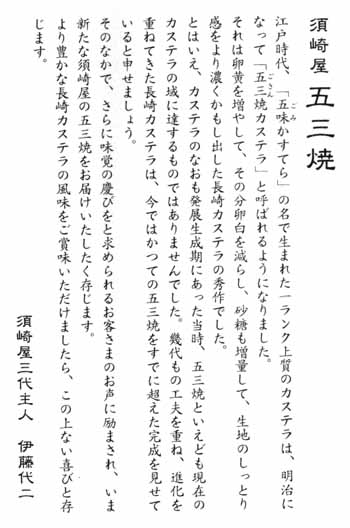 須崎屋 五三焼
江戸時代、「五味かすてら」の名で生まれた一ランク上質のカステラは、明治に
なって「五三焼カステラ」と呼ばれるようになりました。
それは卵黄を増やして、その分卵白を減らし、砂糖も増量して、生地のしっとり
感をより濃くかもし出した長崎カステラの秀作でした。
とはいえ、カステラのなおも発展生成期にあった当時、五三焼といえども現在の
カステラの域に達するものではありませんでした。幾代もの工夫を重ね、進化を
重ねてきた長崎カステラは、今ではかつての五三焼をすでに超えた完成を見せて
いると申せましょう。
そのなかで、さらに味覚の慶びをと求められるお客さまのお声に励まされ、いま
新たな須崎屋の五三焼をお届けいたしたく存じます。
より豊かな長崎カステラの風味をご賞味いただけましたら、この上ない喜びと存
じます。
須崎屋三代主人 伊藤代二